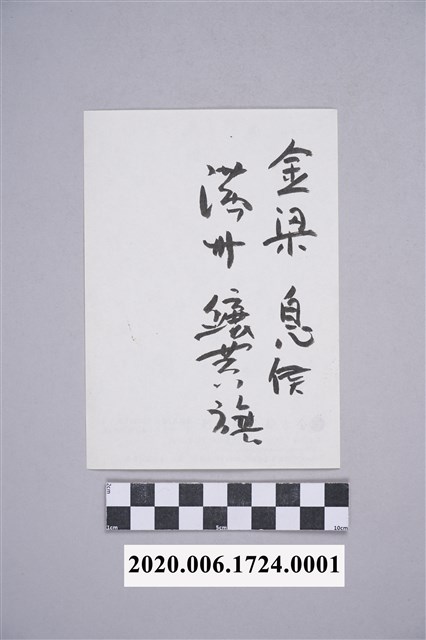 金梁 息侯
滿州 鑲黃旗
2cm
1cm 5cm 10cm
2020.006.1724.0001